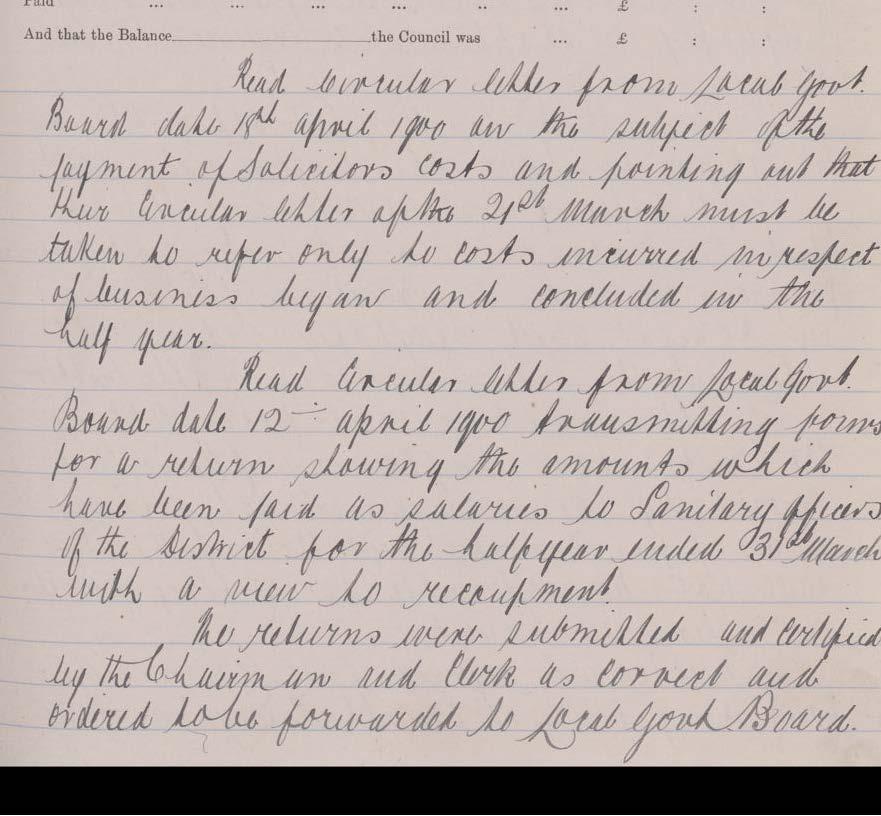 Paid ... ... ... ... .. ... £ : :
And that the Balance____________the Council was ... £ : :
Read Circular letter from Local Govt.
Board date 18th April 1900 on the subject of the
payment of Solicitors costs and pointing out that
their Circular letter of the 21st March must be
taken to refer only to costs incurred in respect
of business began and concluded in the
half year.
Read Circular letter from Local Govt.
Board date 12th April 1900 transmitting forms
for a return showing the amounts which
have been paid as salaries to Sanitary Officers
of the District for the half year ended 31st March
with a view to recoupment.
The returns were submitted and certified
by the Chairman and Clerk as correct and
ordered to be forwarded to Local Govt Board.